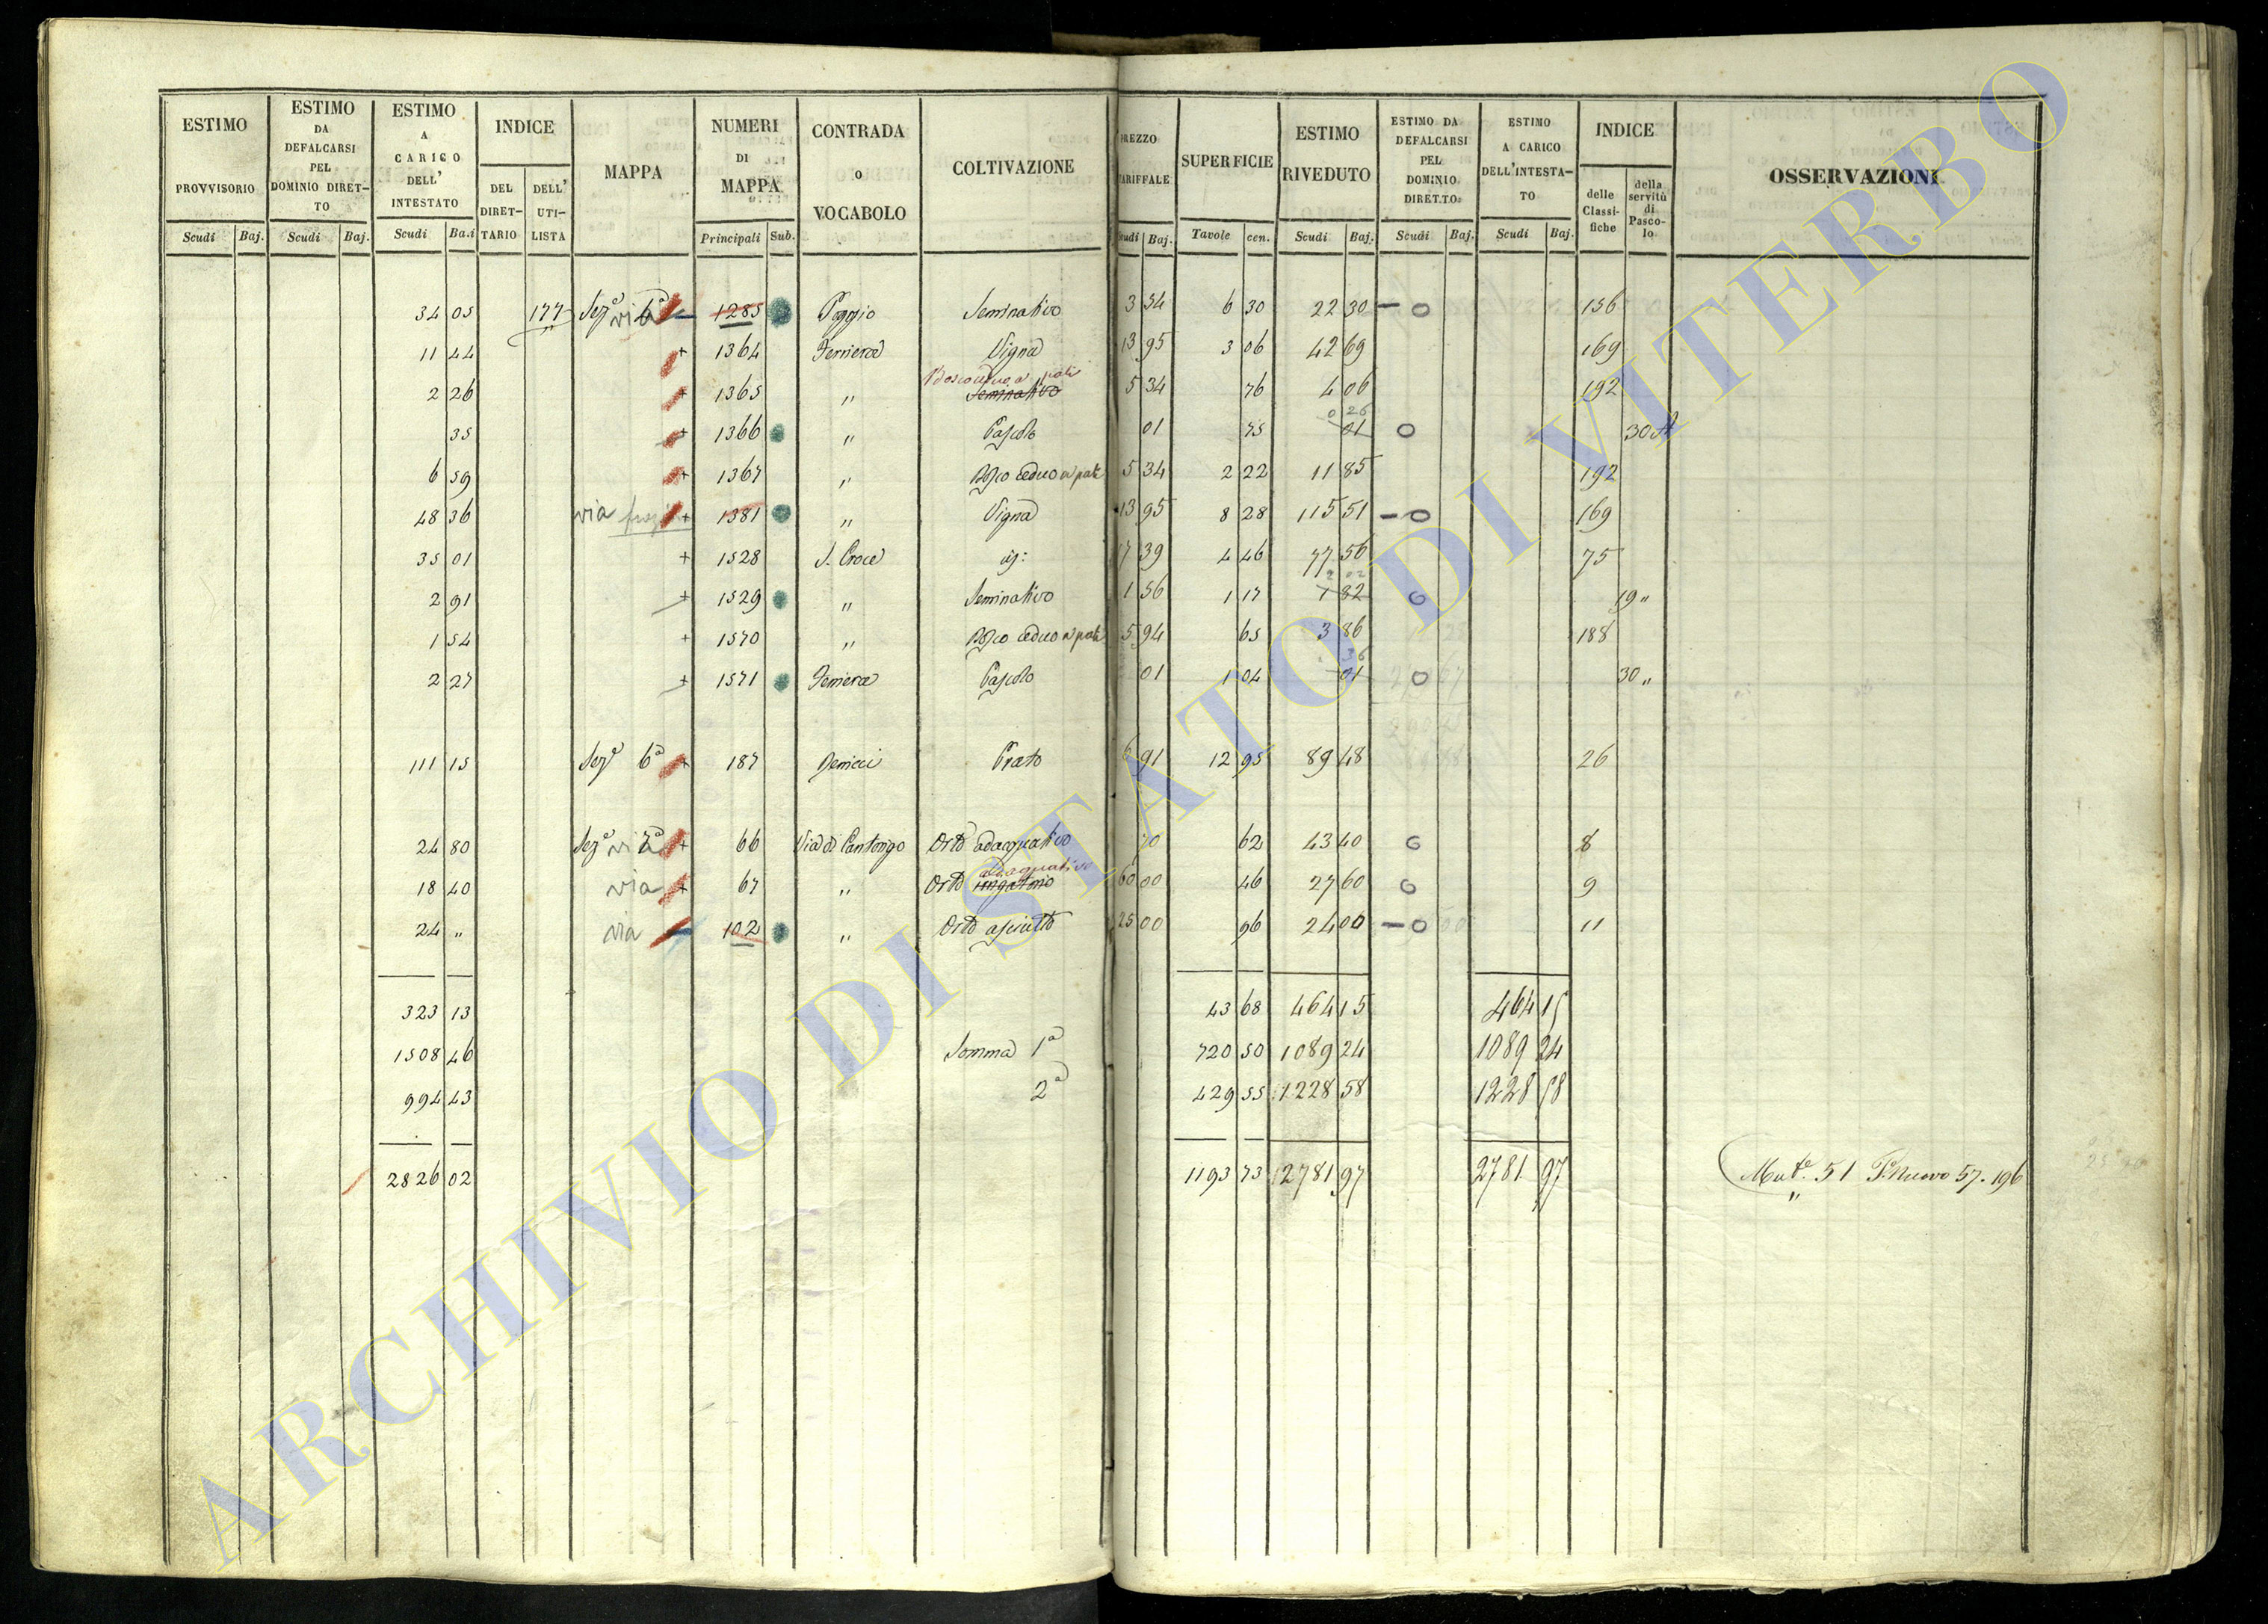 ESTIMO PROVVISORIO
ESTIMO DA DEFALCARSI PEL DOMINIO DIRET-TO
ESTIMO A CARICO DELL' INTESTATO
INDICE
DEL DIRET-TARIO
DELL' UTI-LISTA
MAPPA
NUMERI DI MAPPA
CONTRADA o VOCABOLO
COLTIVAZIONE
PREZZO TARIFFALE
SUPERFICIE
ESTIMO RIVEDUTO
ESTIMO DA DEFALCARSI PEL DOMINIO DIRETTO
ESTIMO A CARICO DELL'INTESTA-TO
INDICE
delle Classi-fiche
della servitù di Pasco-lo
OSSERVAZIONI
Scudi Baj. Scudi Baj. Scudi Baj. Principali Sub. Scudi Baj. Tavole cen. Scudi Baj. Scudi Baj. Scudi Baj.
34 05 177 Sez.e 6a via 1285 Poggio Seminativo 3 54 6 30 22 30 - 0 156
11 44 + 1364 Ferriera Vigna 13 95 3 06 42 69 169
Bosco ceduo a pali
2 26 + 1365 " Seminativo 5 34 76 4 06 192
0 26
35 + 1366 " Pascolo 01 75 01 0 30
6 59 + 1367 " Bosco ceduo a pali 5 34 2 22 11 85 192
48 36 via + 1381 " Vigna 13 95 8 28 115 51 - 0 169
35 01 + 1528 S. Croce 17 39 4 46 77 56 75
2 91 + 1529 " Seminativo 1 56 1 17 1 82 0 19 "
1 54 + 1570 " Bosco ceduo a pali 5 94 65 3 86 188
36
2 27 + 1571 Ferriera Pascolo 01 1 04 01 0 30 "
111 15 Sez.e 6a + 187 Prato 6 91 12 95 89 48 26
24 80 Sez.e 7a via + 66 Via di Orto adacquativo 70 62 43 40 0 8
adacquativo
18 40 via + 67 " Orto irrigatorio 60 00 46 27 60 0 9
24 " via 102 " Orto asciutto 25 00 96 24 00 - 0 11
323 13 43 68 464 15 464 15
1508 46 Somma 1a 720 50 1089 24 1089 24
994 43 2a 429 55 1228 58 1228 58
2826 02 1193 73 2781 97 2781 97 Mut.e 51 P. Nuovo 57. 196
"
ARCHIVIO DI STATO DI VITERBO